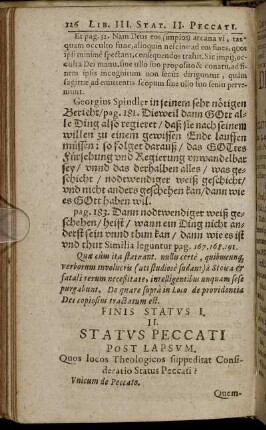 126 LIB. III. STAT. II. PECCATI.
Et pag. 32. Nam Deus eos (impios) arcana vi, tanquam
occulto fune, alioquin nescios ad eos fines, quos
ipsi minimè spectant, consequendos trahit. Sic impij, occulta
Dei manu, sine ullo suo proposito & conatu, ad finem
ipsis incognitum non secus diriguntur, quàm
sagittæ ad eminentis scopum sine ullo suo sensu pervenunt.
Georgius Spindler in seinem sehr nötigen
Bericht/pag. 181. Dieweil dann GOtt alle
Ding also regiert / daß sie nach seinem
willen zu einem gewissen Ende lauffen
müssen: so folget darauß / das GOttes
Fürsehung vnd Regierung vnwandelbar
sey / vnnd das derhalben alles / was geschicht
/ nodtwendiger weiß geschicht/
vnd nicht anders geschehen kan/dann wie
es GOtt haben wil.
pag. 183. Dann nodtwendiger weiß geschehen/
heist / wann ein Ding nicht anderst
sein vnnd thun kan / dann wie es ist
vnd thut Similia leguntur pag. 167. 168. 191.
Quæ cum ita statuant, nulla certè, quibuscunq;
verborum involucris (uti studiosè sudant) à Stoica &
fatali rerum necessitate, intelligentibus unquam sese
purgabunt. De quare suprà in Loco de providentia
Dei copiosius tractatum est.
FINIS STATUS I.
II.
STATVS PECCATI
POST LAPSVM.
Quos locos Theologicos suppeditat Consideratio
Status Peccati?
Vnicum de Peccato.
Quem-